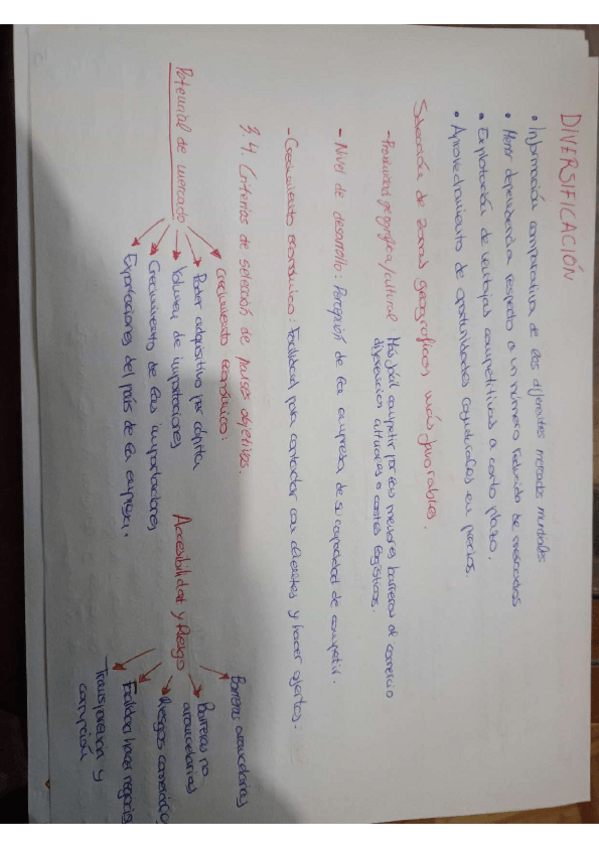 DIVERSIFICACIÓN
• Información comparativa de los diferentes mercados mundiales.
• Menor dependencia respecto a un número reducido de mercados
• Explotación de ventajas competitivas a corto plazo.
• Aprovechamiento de oportunidades coyunturales en precios.
Selección de zonas geográficas más favorables.
- Proximidad geográfica/cultural Más fácil competir por los menores barreras al comercio
diferencias culturales o costes logísticos.
- Nivel de desarrollo: Percepción de la empresa de su capacidad de competir.
- Crecimiento económico: Facilidad para contactar con clientes y hacer ofertas.
3.4. Criterios de selección de países objetivos.
Potencial de mercado
Crecimiento económico:
Poder adquisitivo per cápita
Volumen de importaciones
Crecimiento de las importaciones
Exportaciones del país de la empresa.
Accesibilidad y Riesgo
Barreras arancelarias
Barreras no
arancelarias
Riesgos comerciales
Facilidad hacer negocios
Transparencia y
corrupción